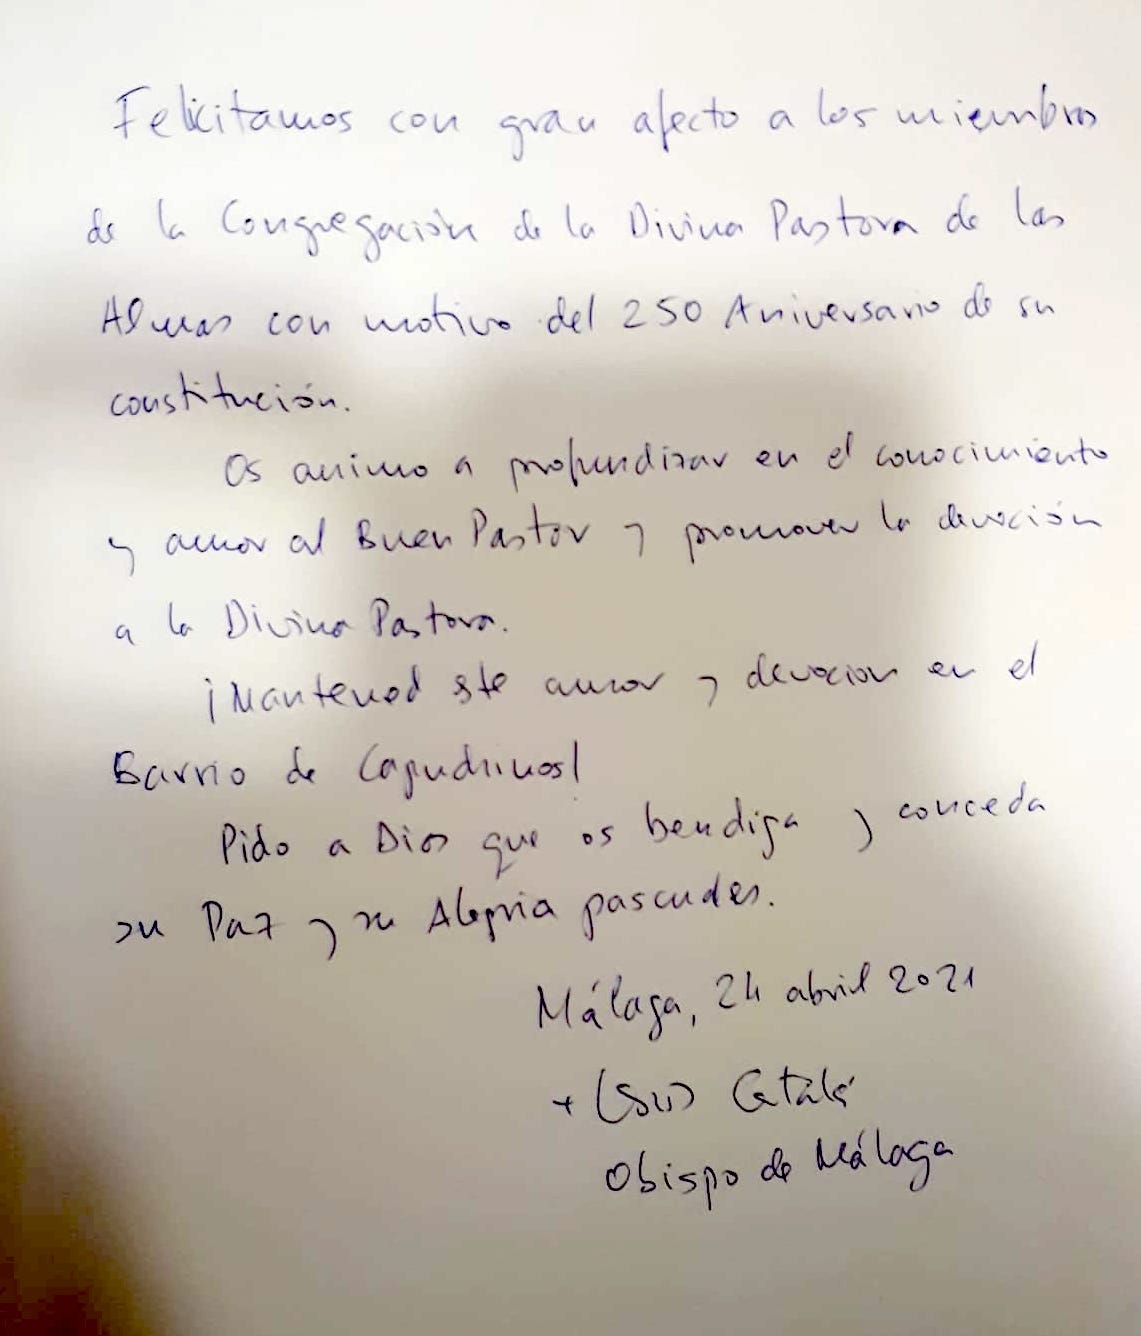 Felicitamos con gran afecto a los miembros
de la Congregación de la Divina Pastora de las
Almas con motivo del 250 Aniversario de su
constitución.
Os animo a profundizar en el conocimiento
y amor al Buen Pastor y promover la devoción
a la Divina Pastora.
¡Mantened este amor y devocion en el
Barrio de Capuchinos!
Pido a Dios que os bendiga y conceda
su Paz y su Alegria pascuales.
Málaga, 24 abril 2021
+ Catalá
Obispo de Málaga